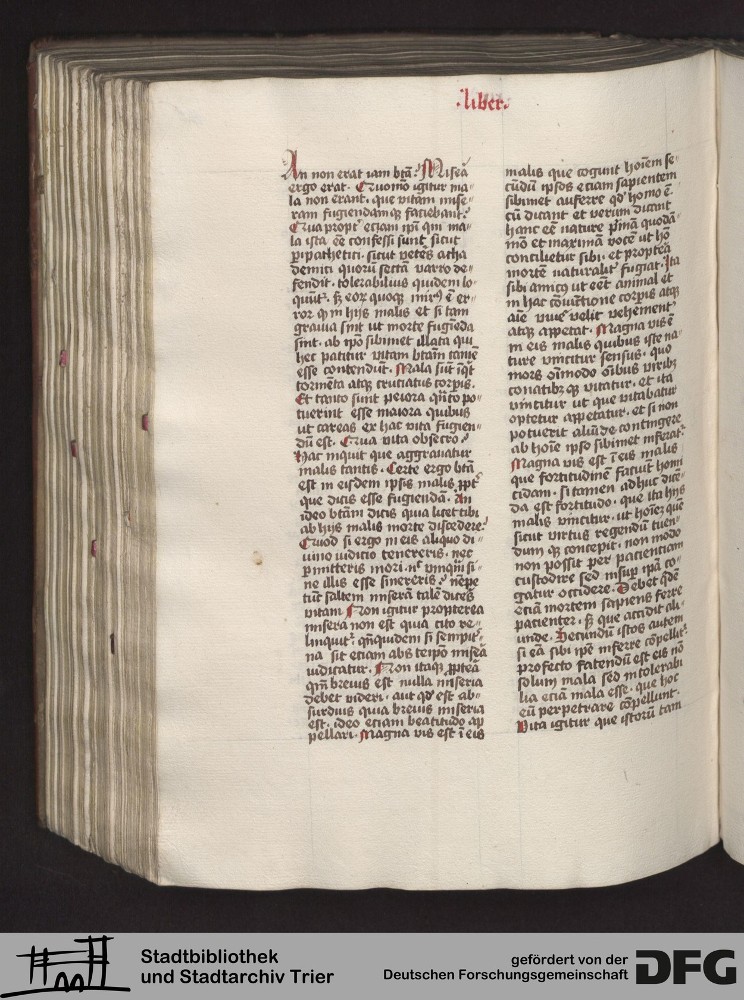 ·liber·
An non erat iam btā? Miseā
ergo erat· Quomo igitur ma-
la non erant· que vitam mise-
ram fugiendamqꝫ faciebant?
Qua propt̕ eciam ipi qui ma-
la ista ēē confessi sunt sicut
peripathetici· sicut vetēs acha
demici quorū sectā varro de-
fendit· tolerabilius quidem lo-
quūt̕· sꝫ eorꝫ quoqꝫ mirꝰ ē er-
ror qm̄ in hijs malis et si tam
gravia sint ut morte fugiēda
sint· ab ip̄o sibimet illata qui
hec patitur vitam btām tamē
esse contendūt· Mala sūt iqt̄
tormēta atqꝫ cruciatus corpīs·
Et tanto sunt peiora qūto po-
tuerint esse maiora quibus
ut careas ex hac vita fugien-
dū est· Qua vita obsecro?
Hac inquit que aggravatur
malis tantis· Certe ergo btā
est in eisdem ipsis malis ꝓpt̕
que dicis esse fugiendā· An
ideo btām dicis quia licet tibi
ab hijs malis morte discedere?
Quod si ergo in eis aliquo di-
uino iudicio tenereris· nec
ꝑmitteris mori· nec vnquā si-
ne illis esse sinereris? nēpe
tūc saltem miserā talē dicēs
vitam· Non igitur propterea
misera non est quia cito re-
linquit̕· qn̄quidem si sempit̕-
na sit eciam abs teipō miseā
iudicatur· Non itaqꝫ ꝓpteā
qm̄ brevis est nulla miseria
debet videri· aut qd̕ est ab-
surdius quia brevis miseria
est· ideo eciam beatitudo ap
pellari· Magna vis est ī eis
malis que cogunt hoīem se-
cūdū ipsos eciam sapientem
sibimet auferre qd̕ homo ē·
cū dicant et verum dicant
hanc eē nature pͥmā quodā-
mō et maximā vocē ut hō
concilietur sibi· et propteā
mortē naturalit̕ fugiat· Ita
sibi amicꝰ ut eēt animal et
in hac cōiūctione corpīs atqꝫ
aīe viuē velit vehement̕
atqꝫ appetat· Magna vis ē
in eis malis quibus iste na-
ture vincitur sensus· quo
mors oīmodo oībus viribꝫ
conatibꝫ qꝫ vitatur· et ita
vincitur ut que vitabatur
optetur appetatur· et si non
potuerit aliūde contingere
ab hoīe ipso sibimet inferat̕·
Magna vis est ī eis malis
que fortitudinē faciūt homi
cidam· si tamen adhuc dicē-
da est fortitudo· que ita hijs
malis vincitur· ut hoīeꝫ quē
sicut virtus regendū tuen-
dum qꝫ concepit· non modo
non possit per pacientiam
custodire sed insuꝑ ip̄a co-
gatur occidere· Debet qdē
eciā mortem sapiens ferre
pacienter· sꝫ que accidit ali-
unde· Secundū istos autem
si eā sibi ip̄e inferre cōpellit̕·
profecto fatendū est eis nō
solum mala sed intolerabi
lia eciā mala esse· que hoc
eū perpetrare cōpellunt·
Vita igitur que istorū tam
Stadtbibliothek
und Stadtarchiv Trier
gefördert von der
Deutschen Forschungsgemeinschaft
DFG